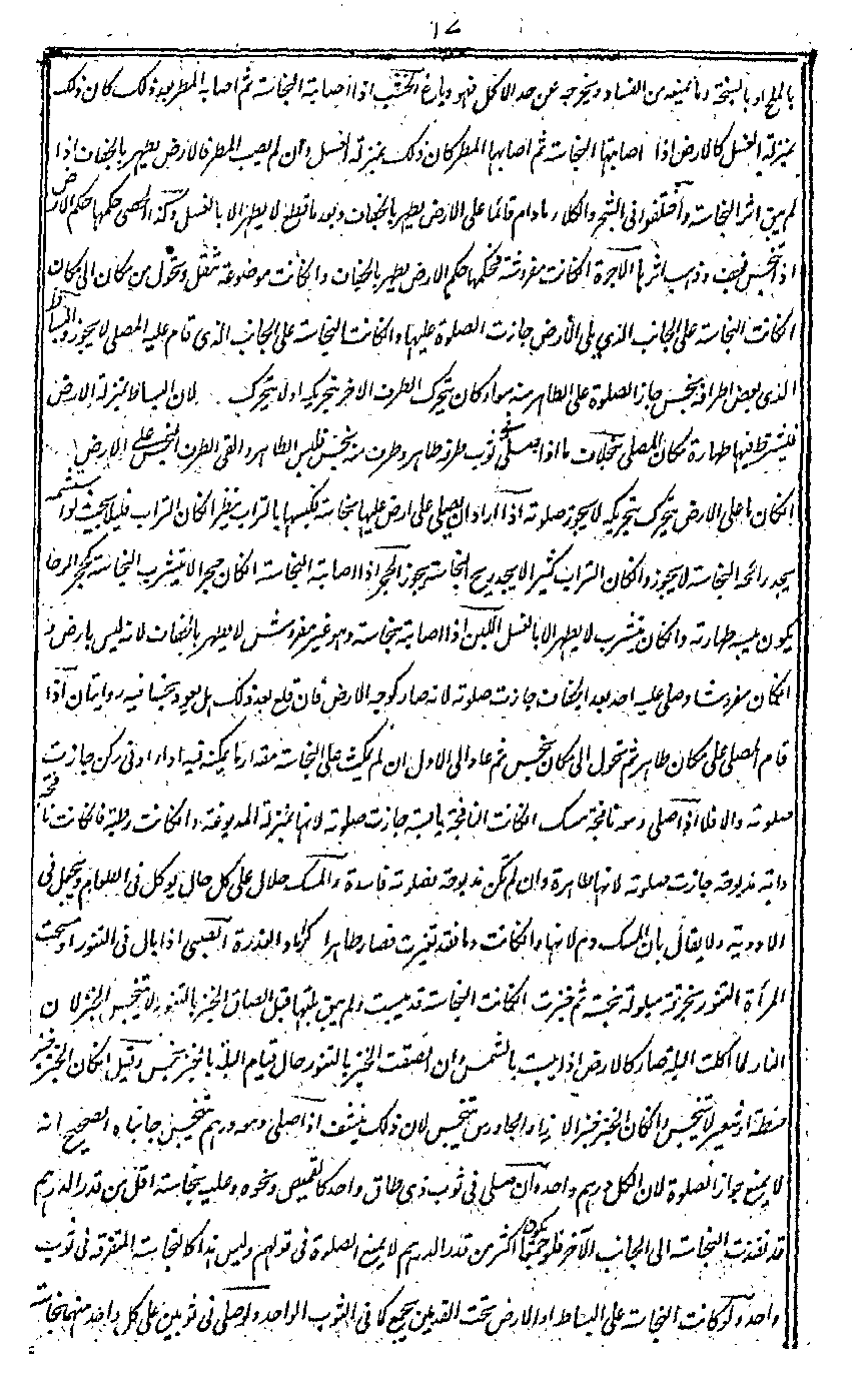 ١٧
بالملح او بالسبخة وما يمنعه من الفساد ويخرجه عن حد الاكل فهو دباغ الخشب اذا اصابته النجاسة ثم اصابه المطر بعد ذلك كان ذلك
بمنزلة الغسل كالارض اذا اصابتها النجاسة ثم اصابها المطر كان ذلك بمنزلة الغسل وان لم يصب المطر فالارض يطهر بالجفاف اذا
لم يبق اثر النجاسة واختلفوا فى الشجر والكلاء ما دام قائما على الارض يطهر بالجفاف وبعد ما قطع لا يطهر الا بالغسل وكذا الحصى حكمها حكم الارض
اذا تنجس فجف وذهب اثرها الاجرة اذا كانت مفروشة فحكمها حكم الارض يطهر بالجفاف وان كانت موضوعة تنقل وتحول من مكان الى مكان
ان كانت النجاسة على الجانب الذي يلى الارض جازت الصلوة عليها وان كانت النجاسة على الجانب الذى قام عليه المصلى لا يجوز والبساط
الذى بعض اطرافه نجس جاز الصلوة على الطاهر منه سواء كان يتحرك الطرف الاخر بتحريكه او لا يتحرك لان البساط بمنزلة الارض
فيشترط فيها طهارة مكان المصلى بخلاف ما اذا صلى فى ثوب طرفه طاهر وطرف منه نجس فلبس الطاهر والقى الطرف النجس على الارض
ان كان ما على الارض يتحرك بتحريكه لا يجوز صلوته اذا اراد ان يصلى على ارض عليها نجاسة فكبسها بالتراب ينظر ان كان التراب قليلا بحيث لو استشمه
يجد رائحة النجاسة لا يجوز وان كان التراب كثيرا لا يجد ريح النجاسة يجوز الحجر اذا اصابته النجاسة ان كان حجرا لا يتشرب النجاسة كحجر الرحا
يكون يبسه طهارته وان كان يتشرب لا يطهر الا بالغسل اللبن اذا اصابته نجاسة وهو غير مفروش لا يطهر بالجفاف لانه ليس بارض و
ان كان مفروشا وصلى عليه احد بعد الجفاف جازت صلوته لانه صار كوجه الارض فان قلع بعد ذلك هل يعود نجسا فيه روايتان اذا
قام المصلى على مكان طاهر ثم تحول الى مكان نجس ثم عاد الى الاول ان لم يمكث على النجاسة مقدار ما يمكنه فيه اداء ادنى ركن جازت
صلوته والا فلا اذا صلى ومعه نافجة مسك ان كانت النافجة يابسة جازت صلوته لانها بمنزلة المدبوغة وان كانت رطبة فان كانت نافجة
دابة مذبوحة جازت صلوته لانها طاهرة وان لم تكن مذبوحة فصلوته فاسدة والمسك حلال على كل حال يوكل فى الطعام ويجعل فى
الادوية ولا يقال بان المسك دم لانها وان كانت دما فقد تغيرت فصار طاهرا كرماد العذرة الصبى اذا بال فى التنور او مسحت
المرأة التنور بخرقة مبلولة نجسة ثم خبزت ان كانت النجاسة قد يبست ولم يبق بلتها قبل الصاق الخبز بالتنور لا يتنجس الخبز لان
النار لما اكلت البلة صار كالارض اذا يبست بالشمس وان الصقت الخبز بالتنور حال قيام البلة بالخبز نجس وقيل ان كان الخبز خبز
حنطة او شعير لا يتنجس وان كان الخبز خبز الارز او الجاورس يتنجس لان ذلك ينشف اذا صلى ومعه درهم يتنجس جانباه الصحيح انه
لا يمنع جواز الصلوة لان الكل درهم واحد وان صلى فى ثوب ذى طاق واحد كالقميص ونحوه وعليه نجاسة اقل من قدر الدرهم
قد نفذت النجاسة الى الجانب الآخر فلو جمعتا يكون اكثر من قدر الدرهم لا يمنع الصلوة فى قولهم وليس هذا كالنجاسة المتفرقة فى ثوب
واحد ولو كانت النجاسة على البساط او الارض تحت القدمين يجمع كما فى الثوب الواحد ولو صلى فى ثوبين على كل واحد منهما نجاسة